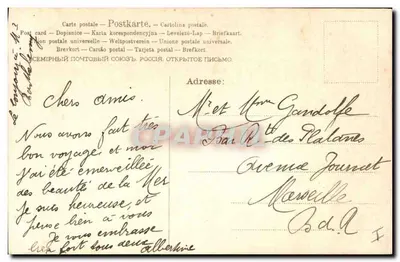 Carte postale – Postkarte. – Cartolina postale
Post card – Dopisnice – Karta korespondencyjna – Levelezö-Lap – Briefkaart
Union postale universelle – Weltpostverein – Unione postale universale
Brevkort – Cartão postal – Tarjeta postal – Brefkort
ВСЕМІРНЫЙ ПОЧТОВЫЙ СОЮЗЪ, РОССІЯ. ОТКРЫТОЕ ПИСЬМО.
Adresse:
Chers amis.
Nous avons fait très
bon voyage et moi
J'ai été émerveillée
des beauté de la Mer
je suis heureuse, et
pense bien à vous
Je vous embrasse
bien fort tous deux
Albertine
Mr et Mme Gandolfe
Bar Rt des Platanes
Avenue Journet
Marseille
B.d.R